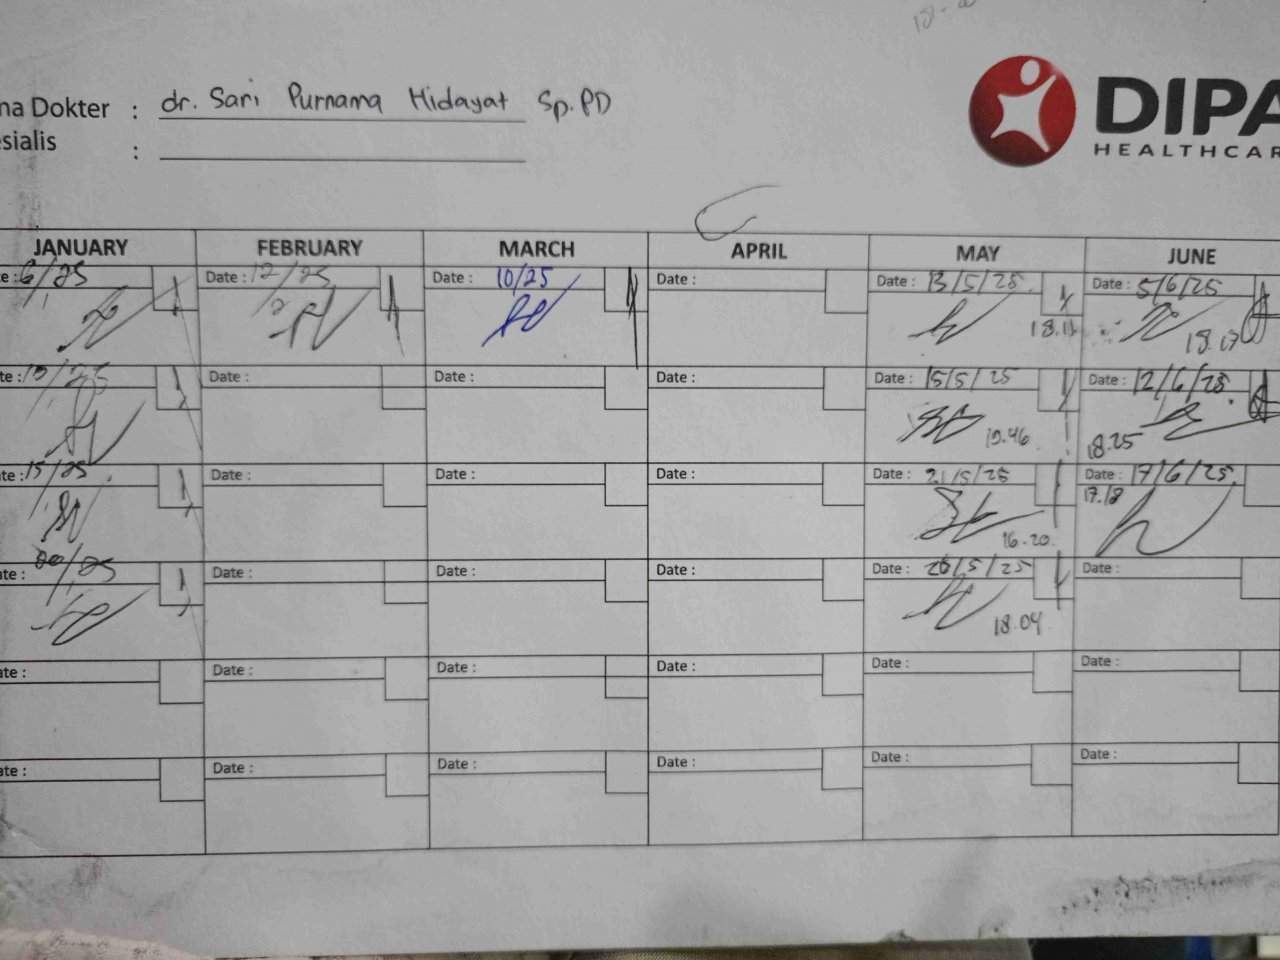 na Dokter : dr. Sari Purnama Hidayat Sp.PD
esialis :
DIPA
HEALTHCAR
JANUARY FEBRUARY MARCH APRIL MAY JUNE
e: 6/25 Date : 12/25 Date : 10/25 Date : Date : 13/5/25 Date : 5/6/25
1 2 18.17
te : 10/25 Date : Date : Date : Date : 15/5/25 Date : 12/6/25
19.46 18.25
te : 15/25 Date : Date : Date : Date : 21/5/25 Date : 17/6/25
16.20 17.18
ate : /25 Date : Date : Date : Date : 26/5/25 Date :
18.04
ate : Date : Date : Date : Date : Date :
ate : Date : Date : Date : Date : Date :